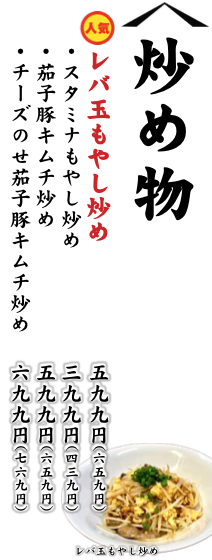 炒め物
人気
レバ玉もやし炒め
五九九円(六五九円)
・スタミナもやし炒め
三九九円(四三九円)
・茄子豚キムチ炒め
五九九円(六五九円)
・チーズのせ茄子豚キムチ炒め
六九九円(七六九円)
レバ玉もやし炒め